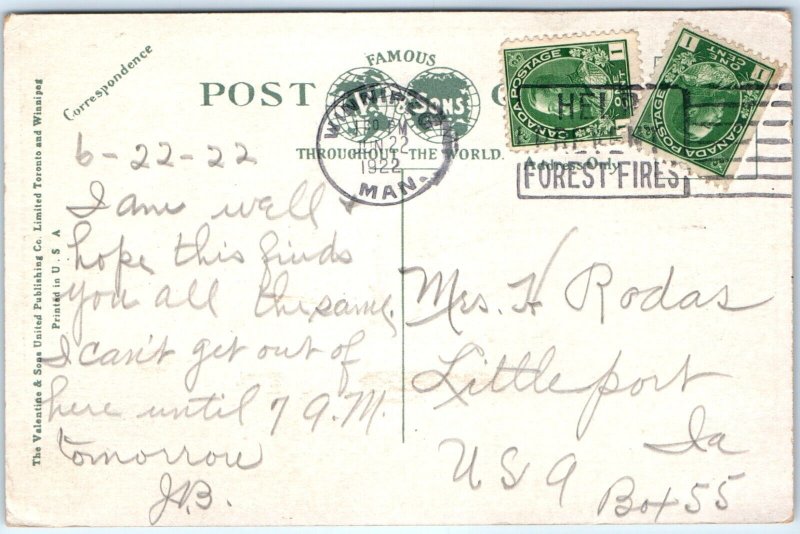 Correspondence
FAMOUS
POST
SONS
THROUGHOUT THE WORLD.
Address Only
WINNIPEG
PM
JUN 22
1922
MAN.
HELP
PREVENT
FOREST FIRES
1
CANADA POSTAGE
1
1
ONE CENT
CANADA POSTAGE
The Valentine & Sons United Publishing Co. Limited Toronto and Winnipeg
Printed in U S A
6-22-22
I am well &
hope this finds
you all the same,
I can't get out of
here until 7 A.M.
tomorrow
J.B.
Mrs. H Rodas
Littleport
Ia
USA
Box 55